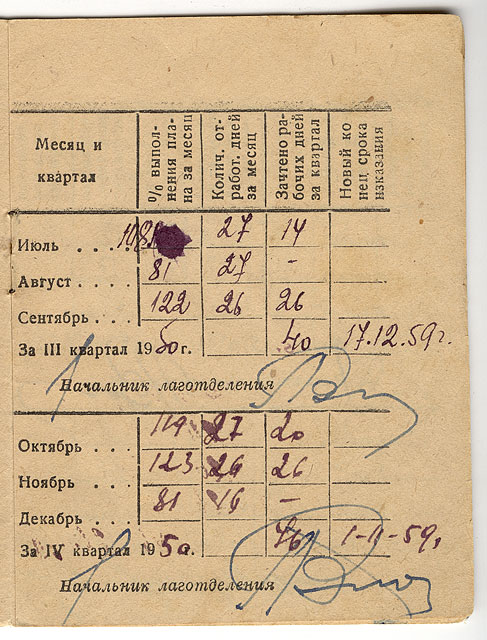 Месяц и квартал | % выпол-нения пла-на за месяц | Колич. от-работ. дней за месяц | Зачтено ра-бочих дней за квартал | Новый ко нец срока наказания
Июль . . . 27 14
Август . . . . 81 27 -
Сентябрь . . . 122 26 26
За III квартал 1950г. 40 17.12.59г.
Начальник лаготделения
Октябрь . . . 119 27 20
Ноябрь . . . 123 26 26
Декабрь . . . 81 16 -
За IV квартал 1950. 46 1-11-59г
Начальник лаготделения